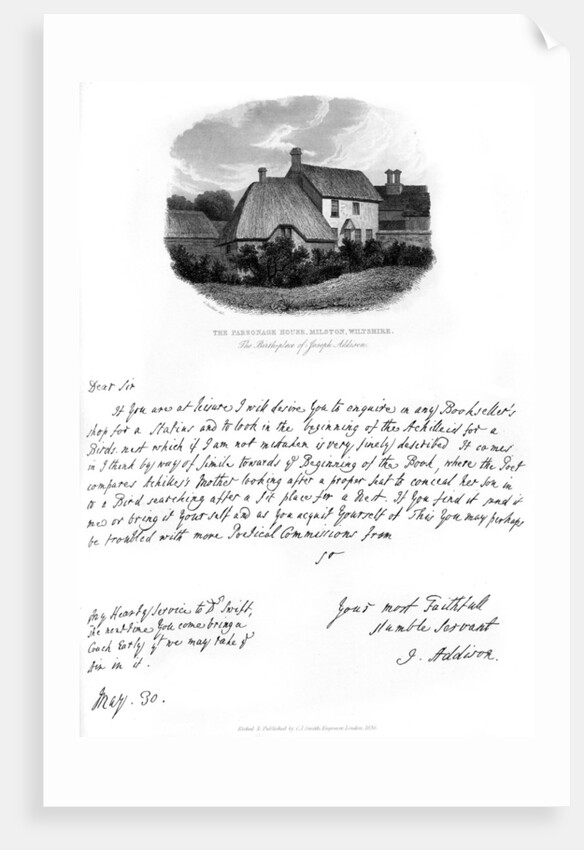 THE PARSONAGE HOUSE, MILSTON, WILTSHIRE.
The Birthplace of Joseph Addison.
Dear Sir
If You are at leisure I will desire You to enquire in any Bookseller's
shop for a Statius and to look in the beginning of the Achilleid for a
Birds-nest which if I am not mistaken is very finely described It comes
in I think by way of Simile towards ye Beginning of the Book, where the Poet
compares Achilles's Mother looking after a proper Seat to conceal her son in
to a Bird searching after a fit place for a Nest. If You find it send it
me or bring it Your self and as you acquit Yourself of This You may perhaps
be troubled with more Poetical Commissions from
Sr
My Hearty Service to Dr Swift,
the next time You come bring a
Coach Early yt we may take ye
Air in it.
May. 30.
Your most Faithfull
Humble Servant
J. Addison.
Etched & Published by C.J. Smith, Engraver London, 1836.